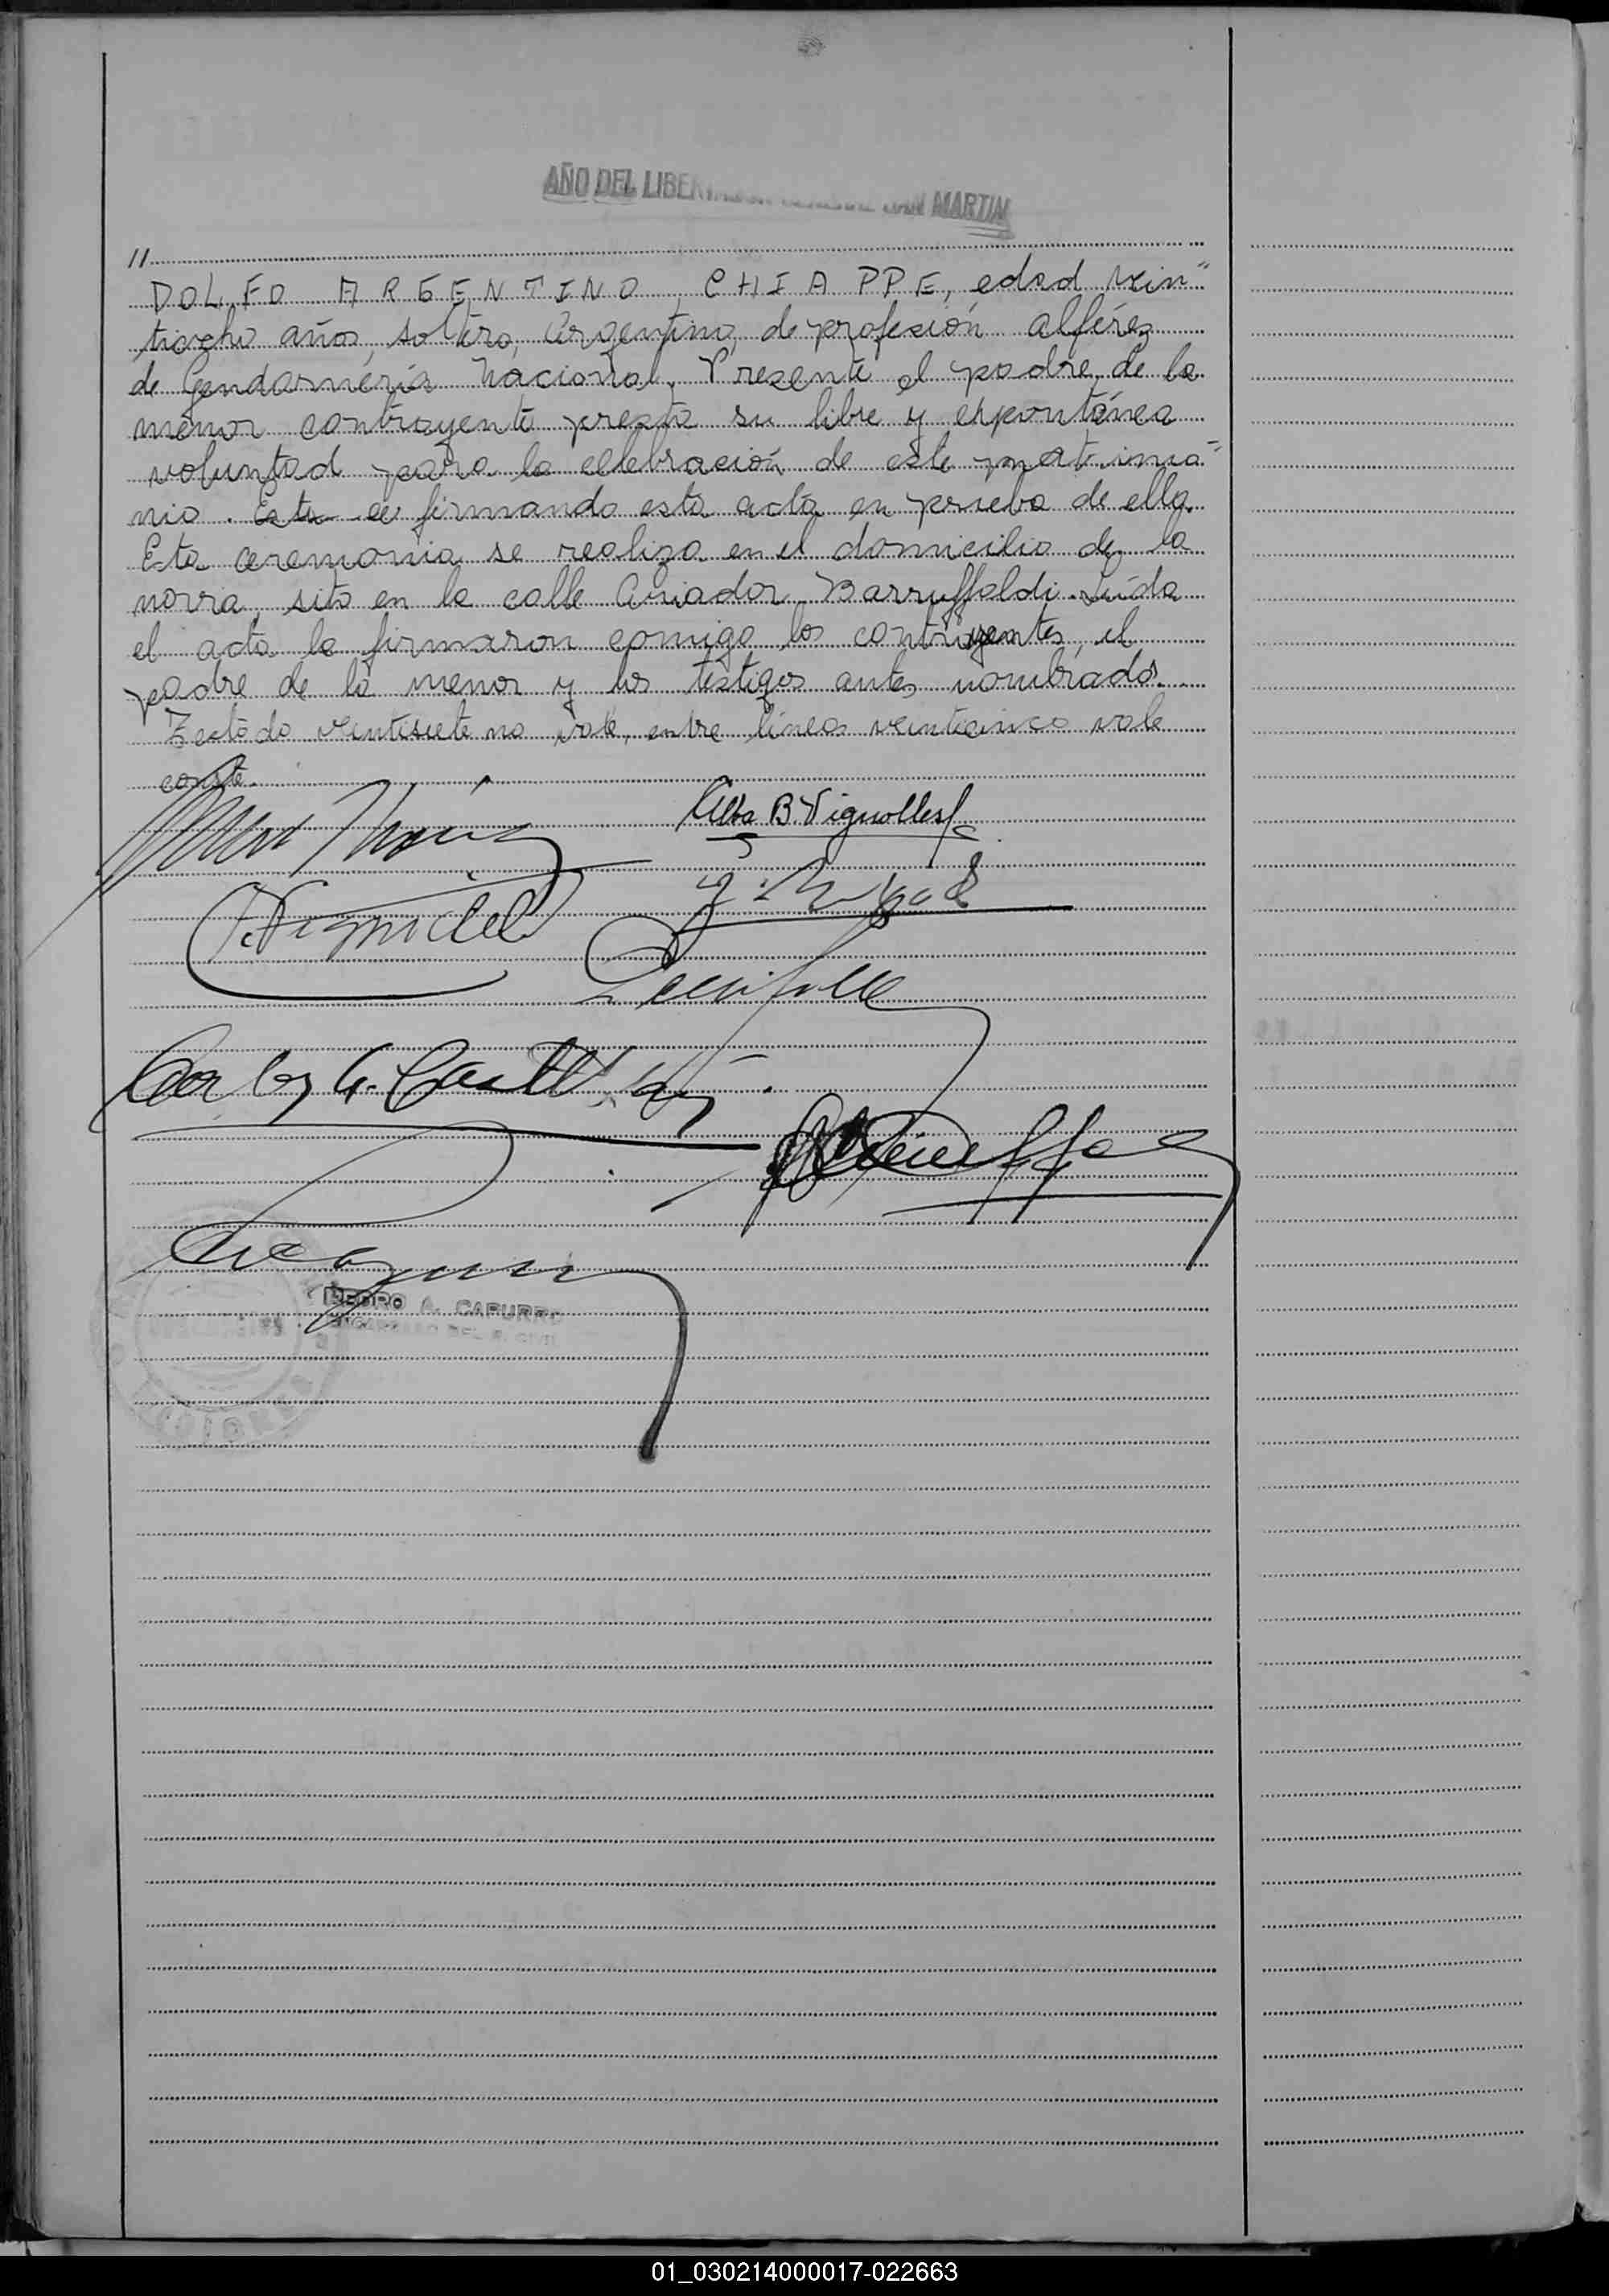 AÑO DEL LIBERTADOR GENERAL SAN MARTIN
//
DOLFO ARGENTINO CHIAPPE, edad vein"
tiocho años, soltero, Argentino, de profesión alférez
de Gendarmería Nacional. Presente el padre de la
menor contrayente presta su libre y expontánea
voluntad para la celebración de este matrimo-
nio. firmando esta acta en prueba de ello.
Esta ceremonia se realiza en el domicilio de la
novia, sito en la calle Aviador Barruffaldi. Leída
el acta la firmaron conmigo los contrayentes, el
padre de la menor y los testigos antes nombrados.
Testado veintisiete no vale, entre líneas veinticinco vale
conste.
Alba B. Vignolles
Carlos
PEDRO A. CAPURRO
ENCARGADO DEL R. CIVIL
01_030214000017-022663